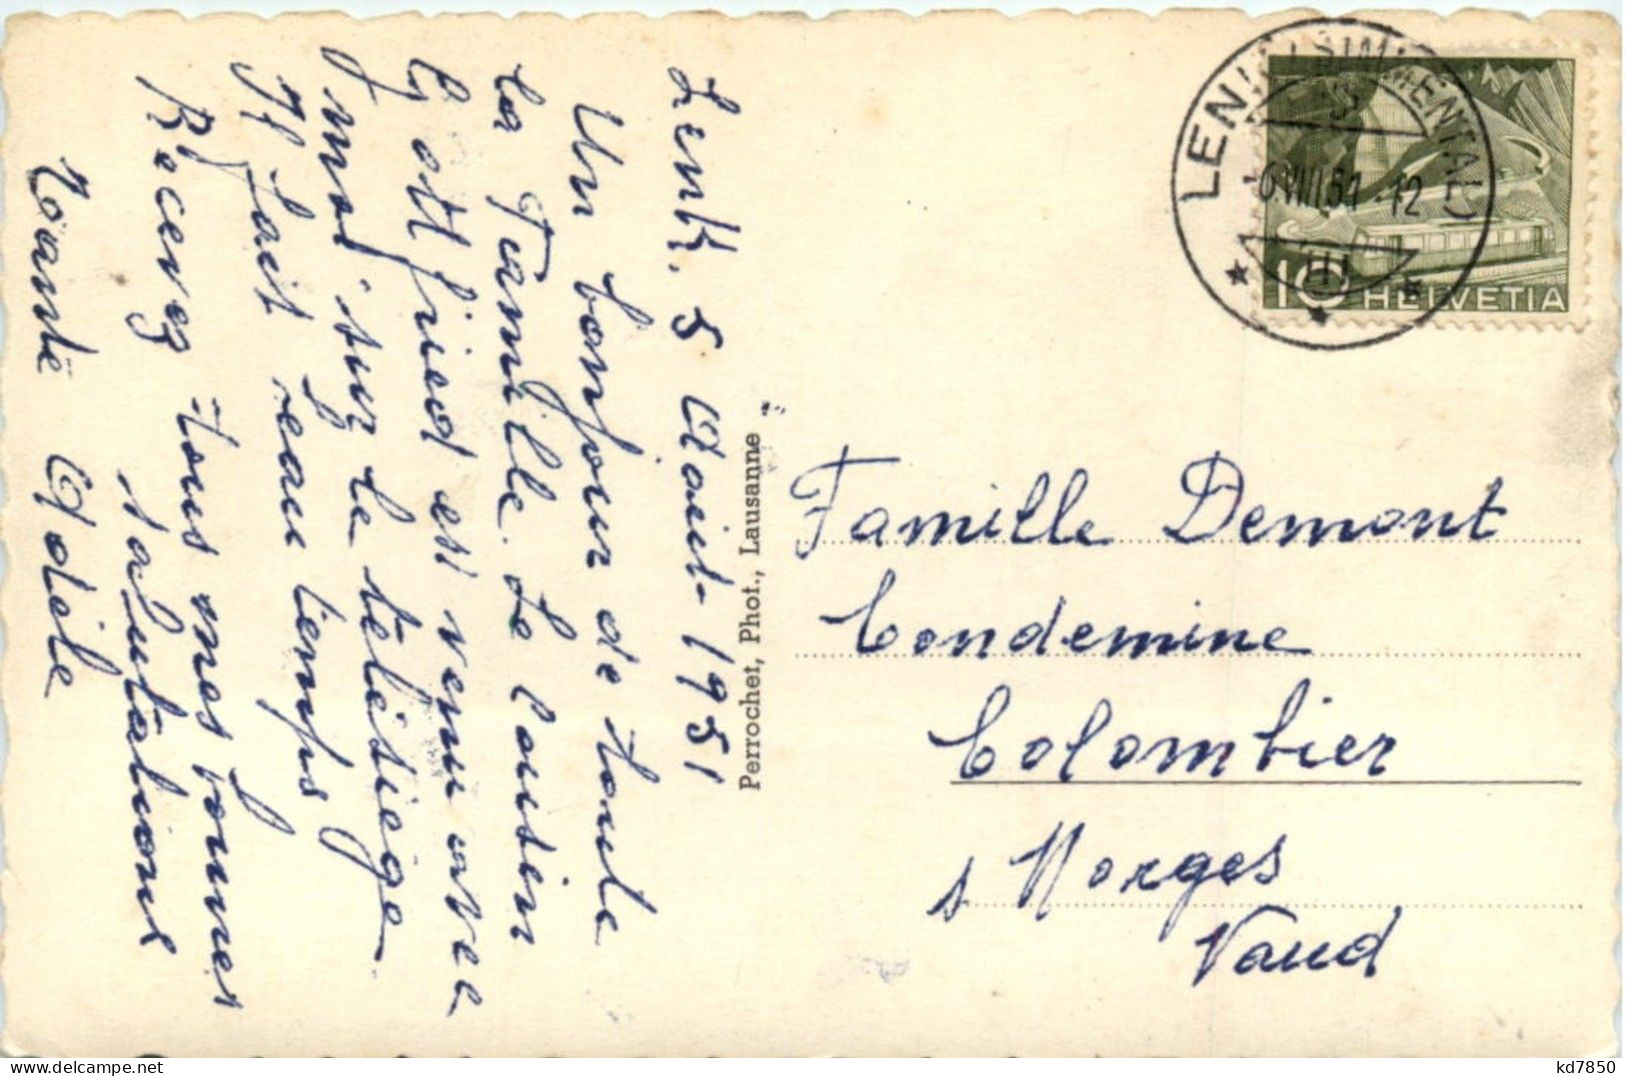 Lenk. 5 Août 1951
Un bonjour de toute
la Famille. Le Cousin
Gottfried est venu avec
moi sur le télésiège
Il fait beau temps
Recevez tous mes bonnes
salutations
Tante Adèle
Perrochet, Phot., Lausanne
LENK (SIMMENTAL)
6.VIII.51.-12
10 HELVETIA
Famille Demont
Condemine
Colombier
s Morges
Vaud
delcampe.net
kd7850